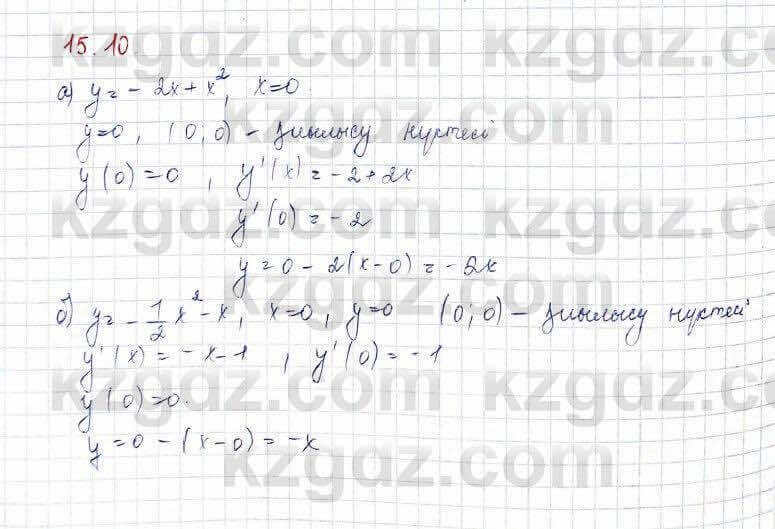 15.10
а) y = - 2x + x², x=0.
y=0, (0;0) - қиылысу нүктесі
y(0)=0, y'(x) = -2+2x
y'(0) = -2
y = 0 - 2(x-0) = -2x
б) y = - 1/2 x² - x, x=0, y=0 (0;0) - қиылысу нүктесі
y'(x) = -x-1, y'(0) = -1
y(0)=0.
y = 0 - (x-0) = -x
kzgdz.com
kzgdz.com
kzgdz.com
kzgdz.com
kzgdz.com
kzgdz.com